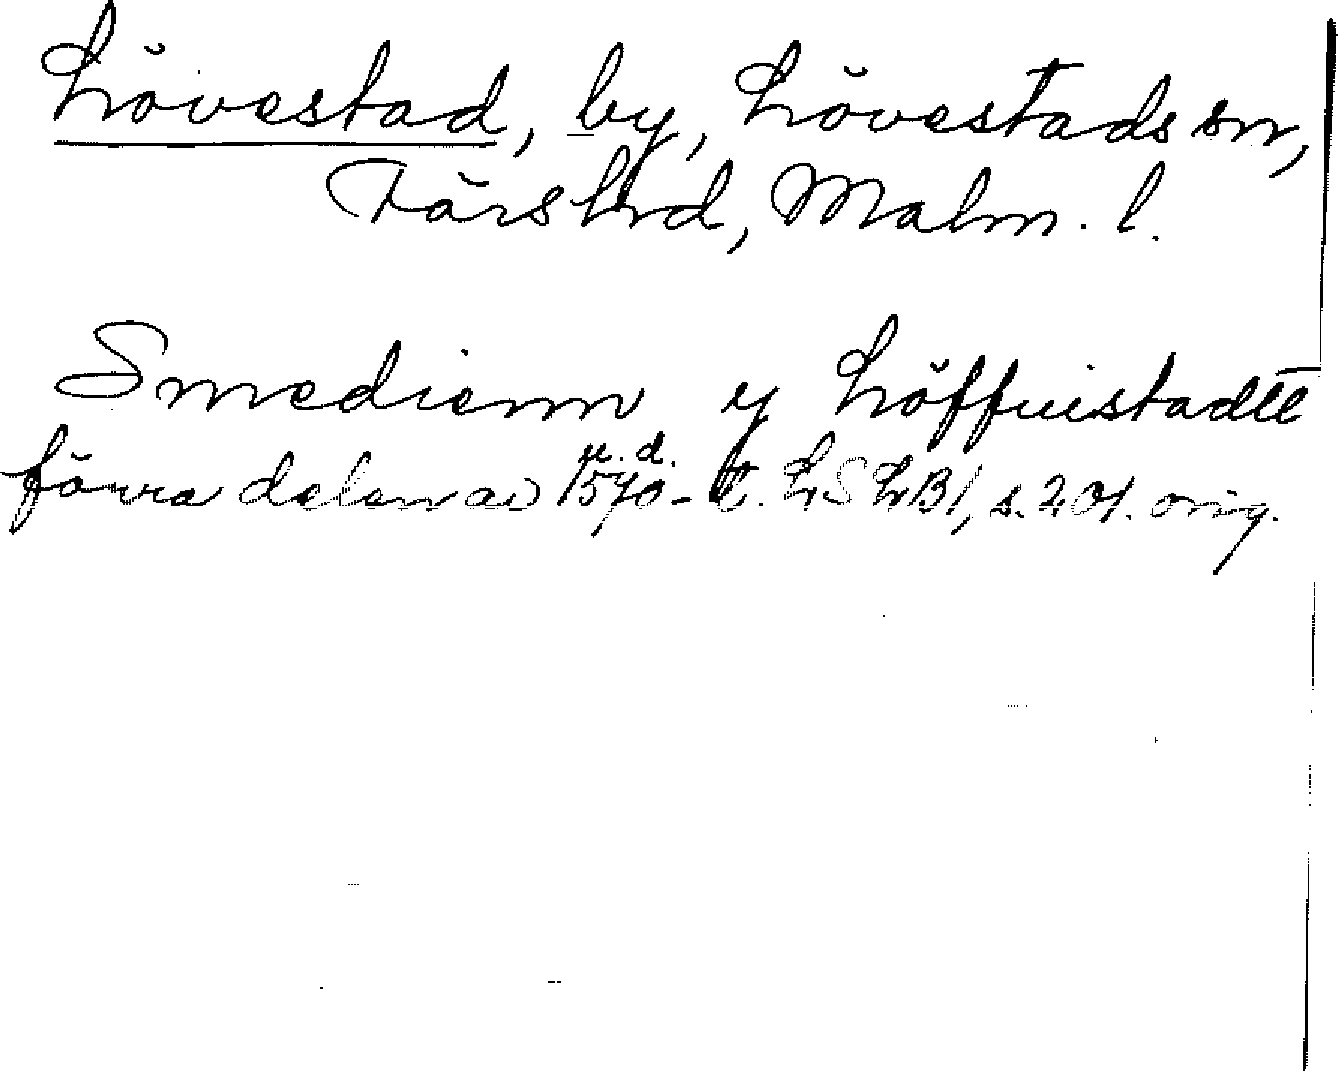 Lövestad, by, Lövestads sn,
Färs hd, Malm. l.
Smedienn y Löffuistadtt
förra delen av 1570-t. LSLB1, s. 201. orig.
u. d.